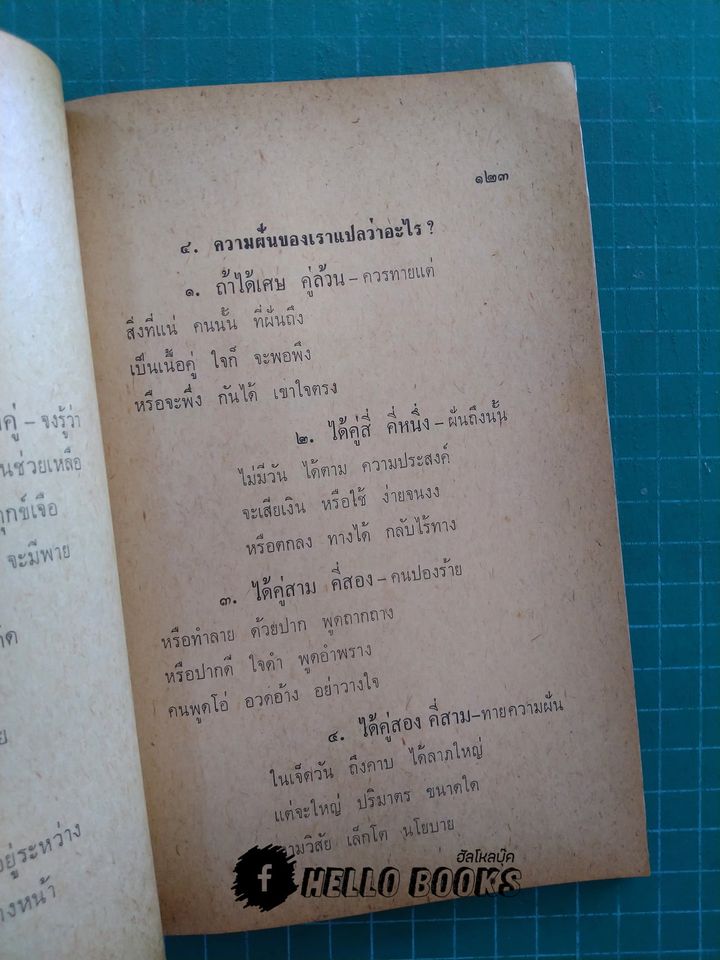 คู่ – จงรู้ว่า
นช่วยเหลือ
ทุกข์เจือ
จะมีพาย
อยู่ระหว่าง
างหน้า
๑๒๓
๔. ความฝันของเราแปลว่าอะไร ?
๑. ถ้าได้เศษ คู่ล้วน – ควรทายแต่
สิ่งที่แน่ คนนั้น ที่ฝันถึง
เป็นเนื้อคู่ ใจก็ จะพอพึง
หรือจะพึ่ง กันได้ เขาใจตรง
๒. ได้คู่สี่ คี่หนึ่ง – ฝันถึงนั้น
ไม่มีวัน ได้ตาม ความประสงค์
จะเสียเงิน หรือใช้ ง่ายจนงง
หรือตกลง ทางได้ กลับไร้ทาง
๓. ได้คู่สาม คี่สอง – คนปองร้าย
หรือทำลาย ด้วยปาก พูดถากถาง
หรือปากดี ใจดำ พูดอำพราง
คนพูดโอ่ อวดอ้าง อย่าวางใจ
๔. ได้คู่สอง คี่สาม – ทายความฝัน
ในเจ็ดวัน ถึงคาบ ได้ลาภใหญ่
แต่จะใหญ่ ปริมาตร ขนาดใด
ตามวิสัย เล็กโต นโยบาย
ฮัลโหลบุ๊ค
f HELLO BOOKS